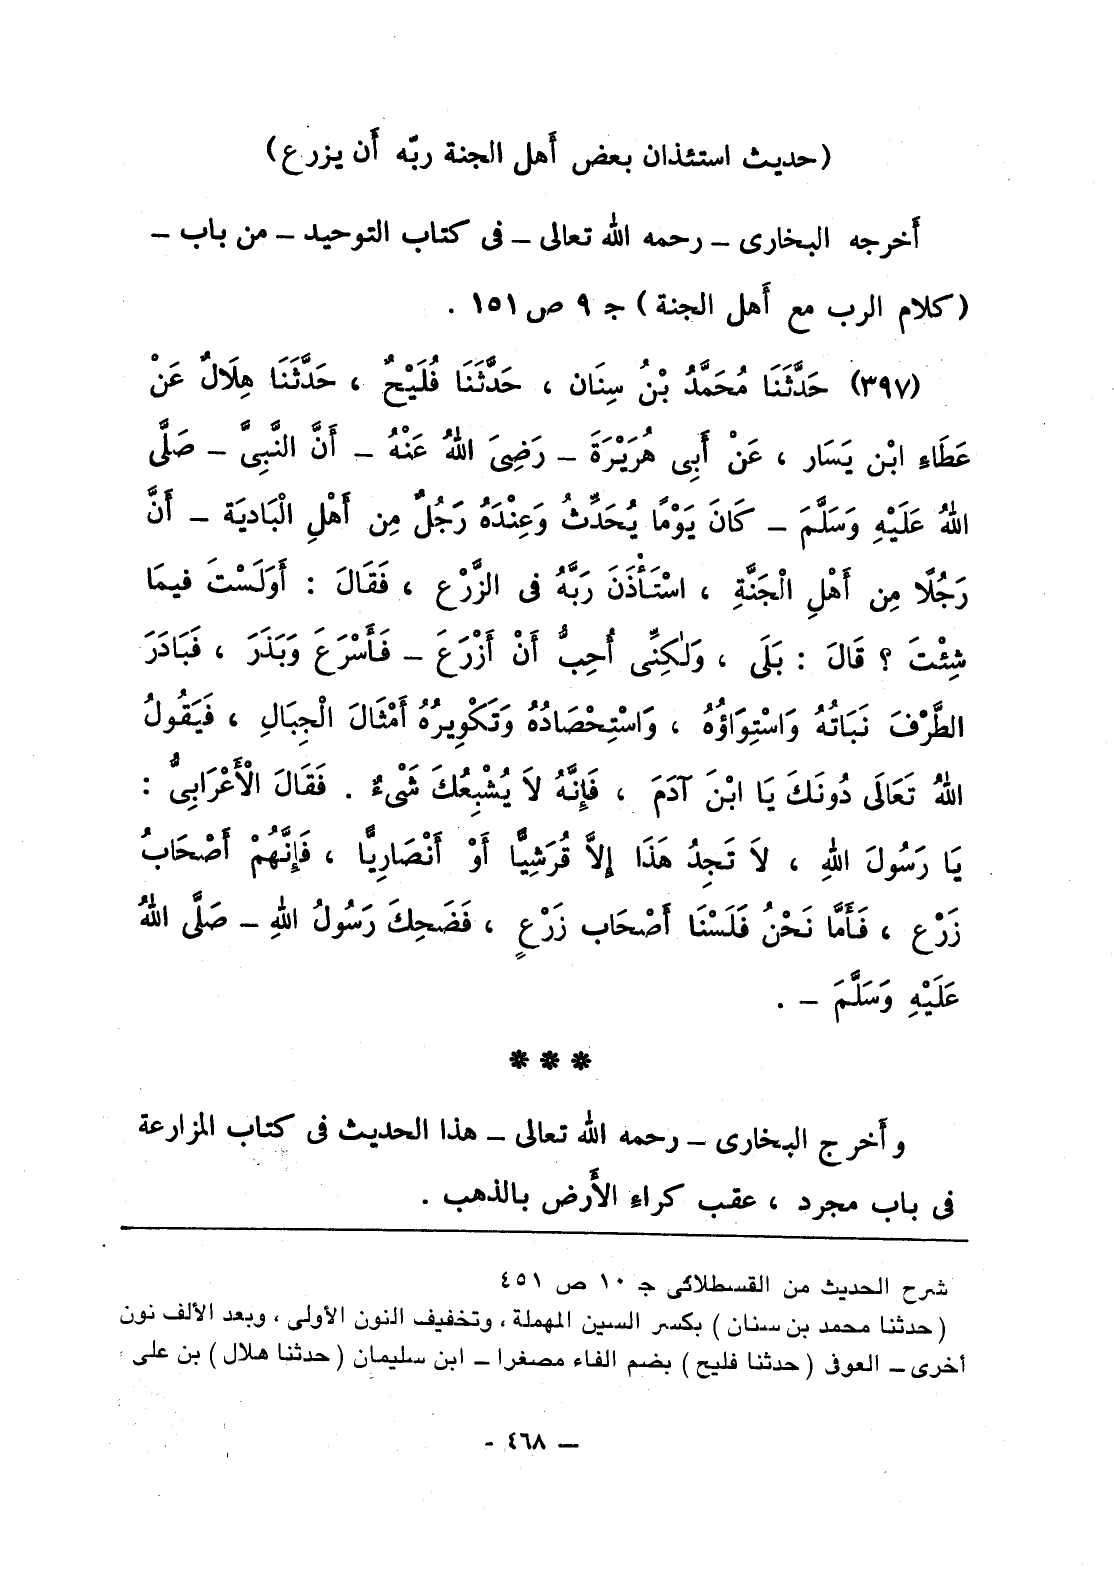 (حديث استئذان بعض أهل الجنة ربّه أن يزرع)
أخرجه البخارى – رحمه الله تعالى – فى كتاب التوحيد – من باب –
(كلام الرب مع أهل الجنة) جـ ٩ ص ١٥١ .
(٣٩٧) حَدَّثَنَا مُحَمَّدُ بْنُ سِنَان ، حَدَّثَنَا فُلَيْحٌ ، حَدَّثَنَا هِلَالٌ عَنْ
عَطَاءِ ابْن يَسَار ، عَنْ أَبِى هُرَيْرَةَ – رَضِىَ اللهُ عَنْهُ – أَنَّ النَّبِىَّ – صَلَّى
اللهُ عَلَيْهِ وَسَلَّمَ – كَانَ يَوْمًا يُحَدِّثُ وَعِنْدَهُ رَجُلٌ مِن أَهْلِ الْبَاديَة – أَنَّ
رَجُلًا مِن أَهْلِ الْجَنَّةِ ، اسْتَأْذَنَ رَبَّهُ فى الزَّرْعِ ، فَقَالَ : أَوَلَسْتَ فيمَا
شِئْتَ ؟ قَالَ : بَلَى ، وَلٰكِنِّى أُحِبُّ أَنْ أَزْرَعَ – فَأَسْرَعَ وَبَذَرَ ، فَبَادَرَ
الطَّرْفَ نَبَاتُهُ وَاسْتِوَاؤُهُ ، وَاسْتِحْصَادُهُ وَتَكْوِيرُهُ أَمْثَالَ الْجِبَالِ ، فَيَقُولُ
اللهُ تَعَالَى دُونَكَ يَا ابْنَ آدَمَ ، فَإِنَّهُ لَا يُشْبِعُكَ شَىْءٌ . فَقَالَ الْأَعْرَابِىُّ :
يَا رَسُولَ اللهِ ، لَا تَجِدُ هَذَا إِلَّا قُرَشِيًّا أَوْ أَنْصَارِيًّا ، فَإِنَّهُمْ أَصْحَابُ
زَرْعِ ، فَأَمَّا نَحْنُ فَلَسْنَا أَصْحَاب زَرْعٍ ، فَضَحِكَ رَسُولُ اللهِ – صَلَّى اللهُ
عَلَيْهِ وَسَلَّمَ – .
* * *
وأخرج البخارى – رحمه الله تعالى – هذا الحديث فى كتاب المزارعة
فى باب مجرد ، عقب كراء الأرض بالذهب .
شرح الحديث من القسطلائى جـ ١٠ ص ٤٥١
(حدثنا محمد بن سنان) بكسر السين المهملة ، وتخفيف النون الأولى ، وبعد الألف نون
أخرى – العوفى (حدثنا فليح) بضم الفاء مصغرا – ابن سليمان (حدثنا هلال) بن على
– ٤٦٨ -